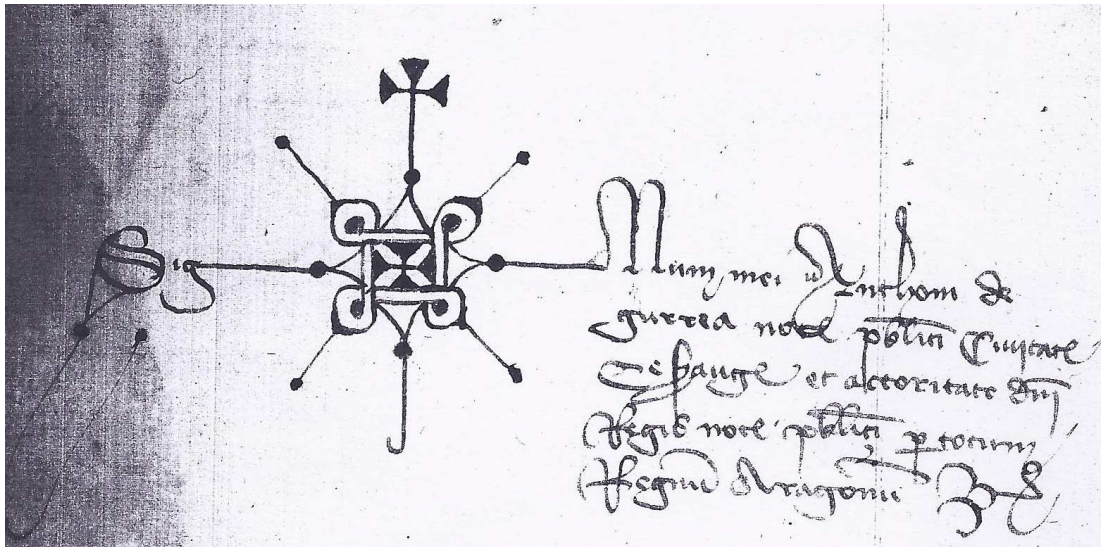 Sig num mei Anthom de
gurrea note pblici Civitate
Cesauge et actoritate dni
Regis note pblici p totum
Regnu Aragonu